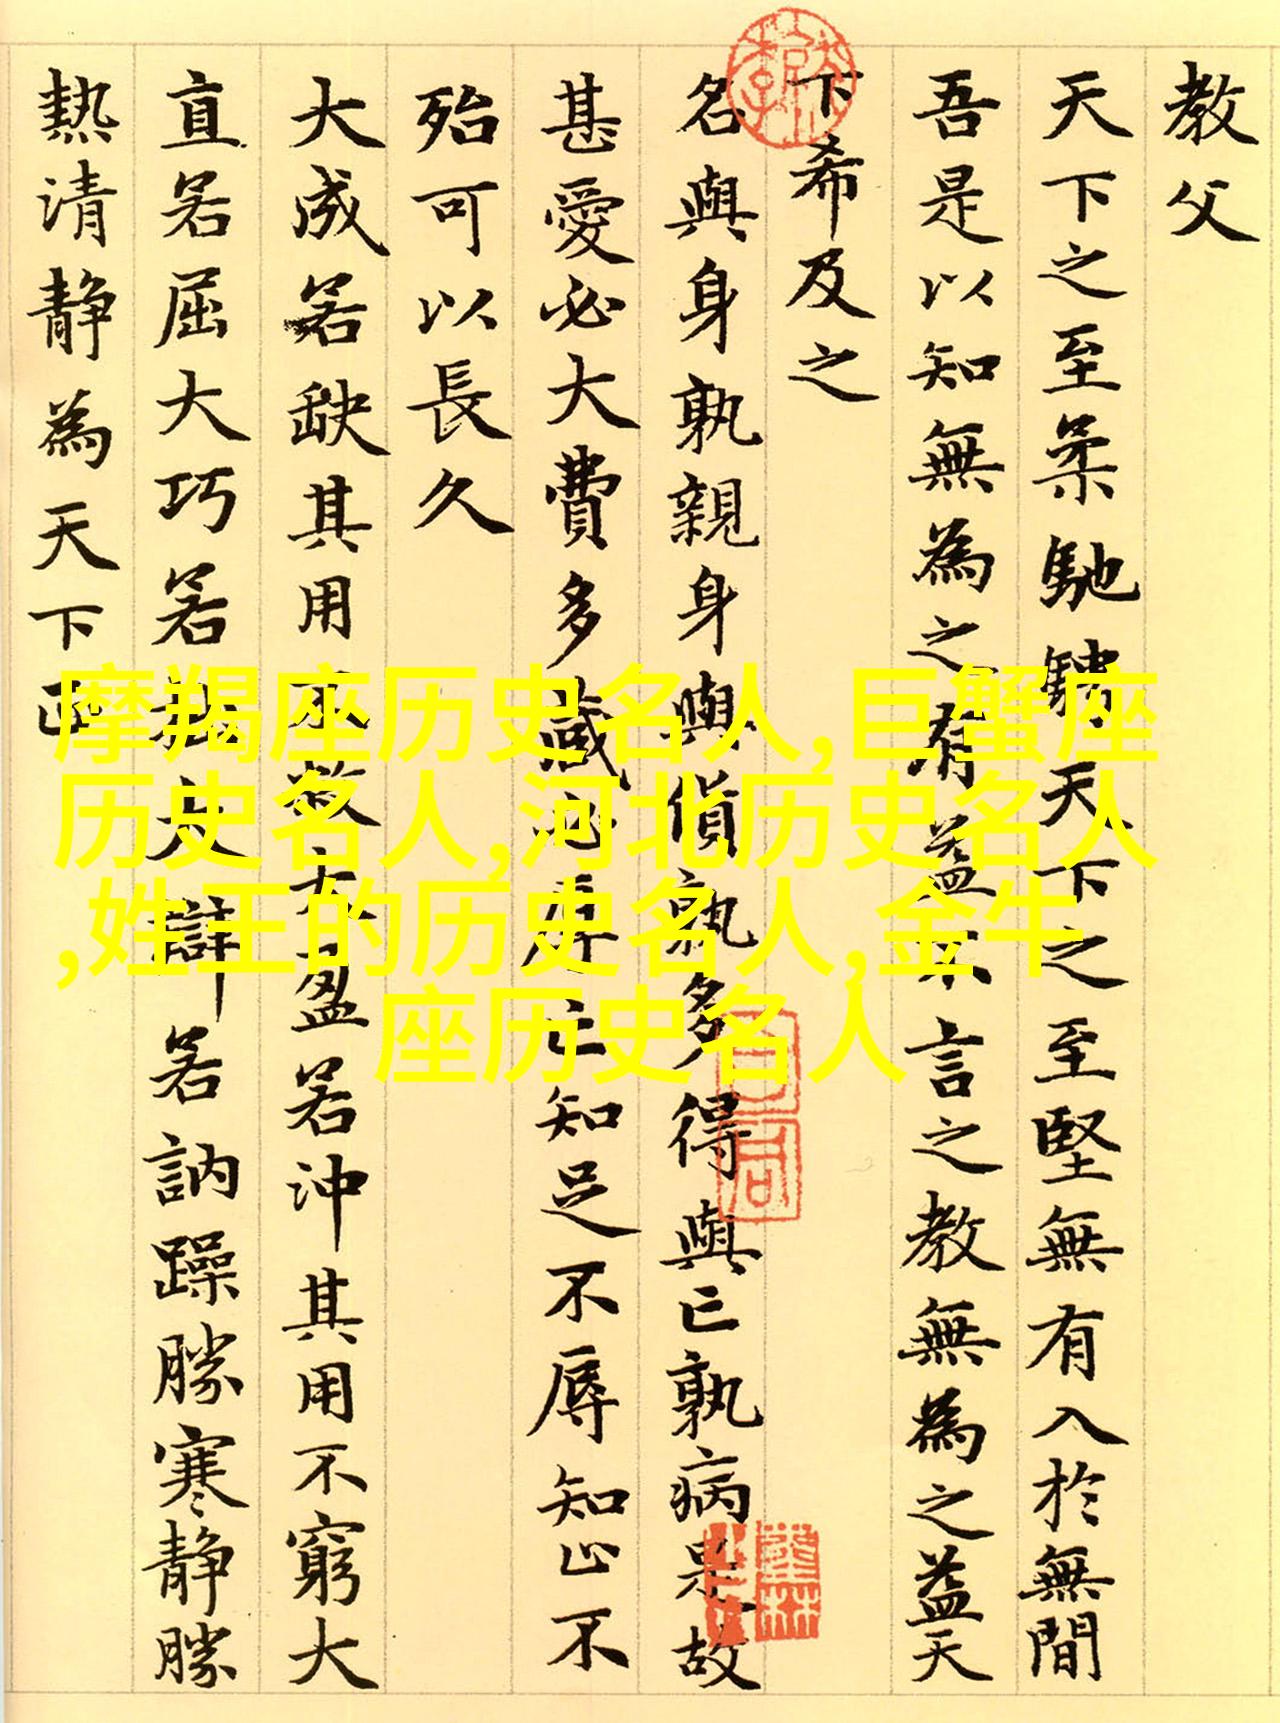 教父
天下之至柔馳騁天下之至堅無有入於無間
吾是以知無為之有益不言之教無為之益天
下希及之
名與身孰親身與貨孰多得與亡孰病是故
甚愛必大費多藏必厚亡知足不辱知止不
殆可以長久
大成若缺其用不敝大盈若沖其用不窮大
直若屈大巧若拙大辯若訥躁勝寒靜勝
熱清靜為天下正
摩羯座历史名人,巨蟹座
历史名人,河北历史名人
,姓王的历史名人,金牛
座历史名人